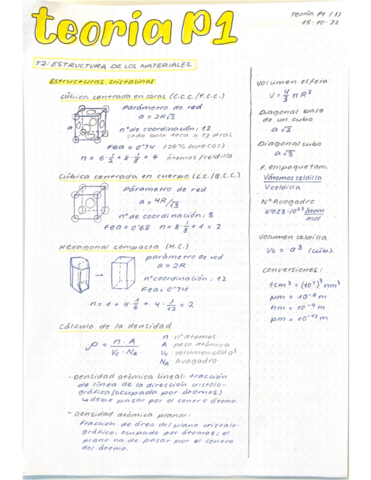 teoría P1
TEORÍA P1 (1)
15-10-22
T2: ESTRUCTURA DE LOS MATERIALES.
Estructuras cristalinas
Cúbica centrada en caras (C.C.C./F.C.C.)
Parámetro de red
a = 2R√2
a
nº de coordinación: 12
cada bola toca a 12 otras
FEA = 0'74 (26% huecos)
n = 6·1/2 + 8·1/8 = 4 átomos/celdilla
Cúbica centrada en cuerpo (C.C./B.C.C.)
Parámetro de red
a = 4R/√3
nº de coordinación: 8
FEA = 0'68 n = 8·1/8 + 1 = 2
Hexagonal compacta (H.C.)
parámetro de red
a = 2R
nº coordinación: 12
FEA = 0'74
n = 1 + 4·1/6 + 4·1/12 = 2
Cálculo de la densidad
ρ = n·A / Vc·NA
n nº átomos
A peso atómico
Vc volumen celda
NA Avogadro
- Densidad atómica lineal: fracción
de línea de la dirección cristalo-
gráfica (ocupada por átomos)
↳ debe pasar por el centro átomo.
- Densidad atómica planar:
fracción de área del plano cristalo-
gráfico, ocupado por átomos; el
plano ha de pasar por el centro
del átomo.
Volumen esfera.
V = 4/3 π R³
Diagonal base
de un cubo
a√2
Diagonal cubo
a√3
F. empaquetam.
Vátomos celdilla
Vceldilla
Nº Avogadro
6'023·10²³ átom
mol
Volumen celdilla
Vc = a³ (cúb).
Conversiones:
1cm³ = (10⁷)³ nm³
μm = 10⁻⁶ m
nm = 10⁻⁹ m
pm = 10⁻¹² m